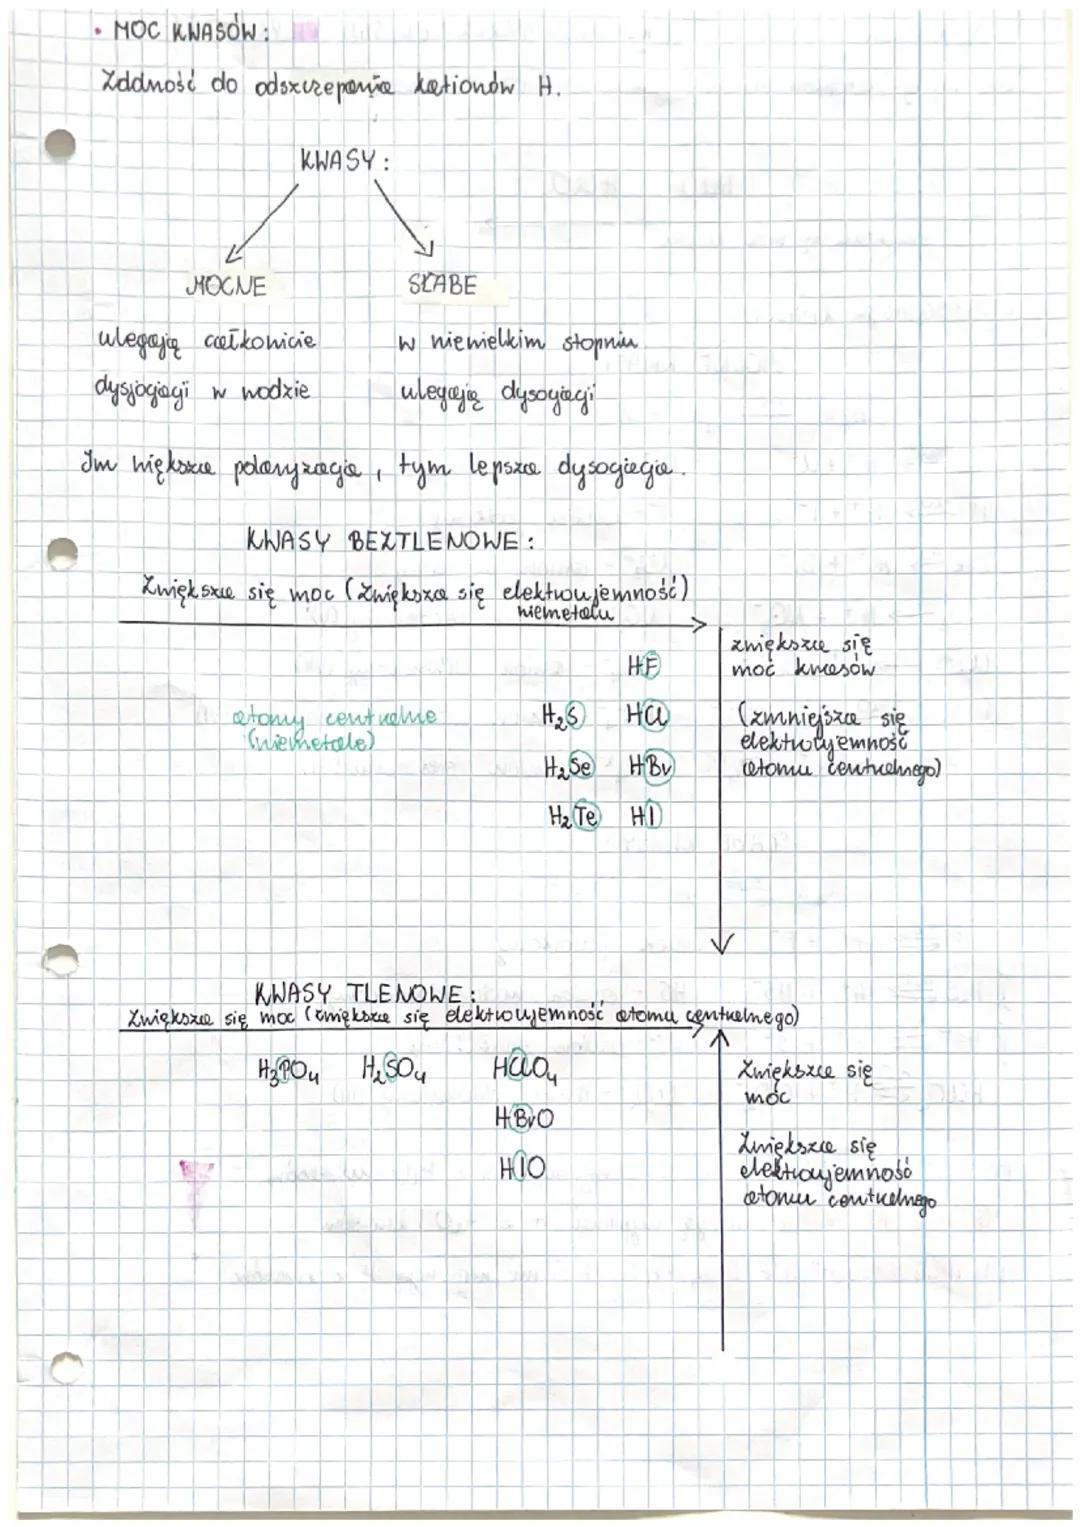 • MOC KWASÓW:
Zddność do odszczepania kationów H.
KWASY:
MOCNE
SŁABE
ulegają całkonicie
dysjogiagi w wodzie
w niewielkim stopniu
ulegają dysogiagi
Im większa polaryzagia, tym lepsza dysogiagia.
KWASY BEZTLENOWE:
Zwiększa się moc (Zwiększa się elektroujemność)
niemetalu
zwiększa się
moc kwasów
(zmniejsza się
elektroujemność
atomu centralnego)
atomy centralne
(niemetale)
HF
H₂S HCl
H₂Se HBr
H₂Te HI
KWASY TLENOWE:
Zwiększa się moc (zwiększa się elektroujemność atomu centralnego)
H₃PO₄ H₂SO₄ HClO₄
HBrO
HIO
Zwiększa się
moc
Zwiększa się
elektroujemność
atomu centralnego